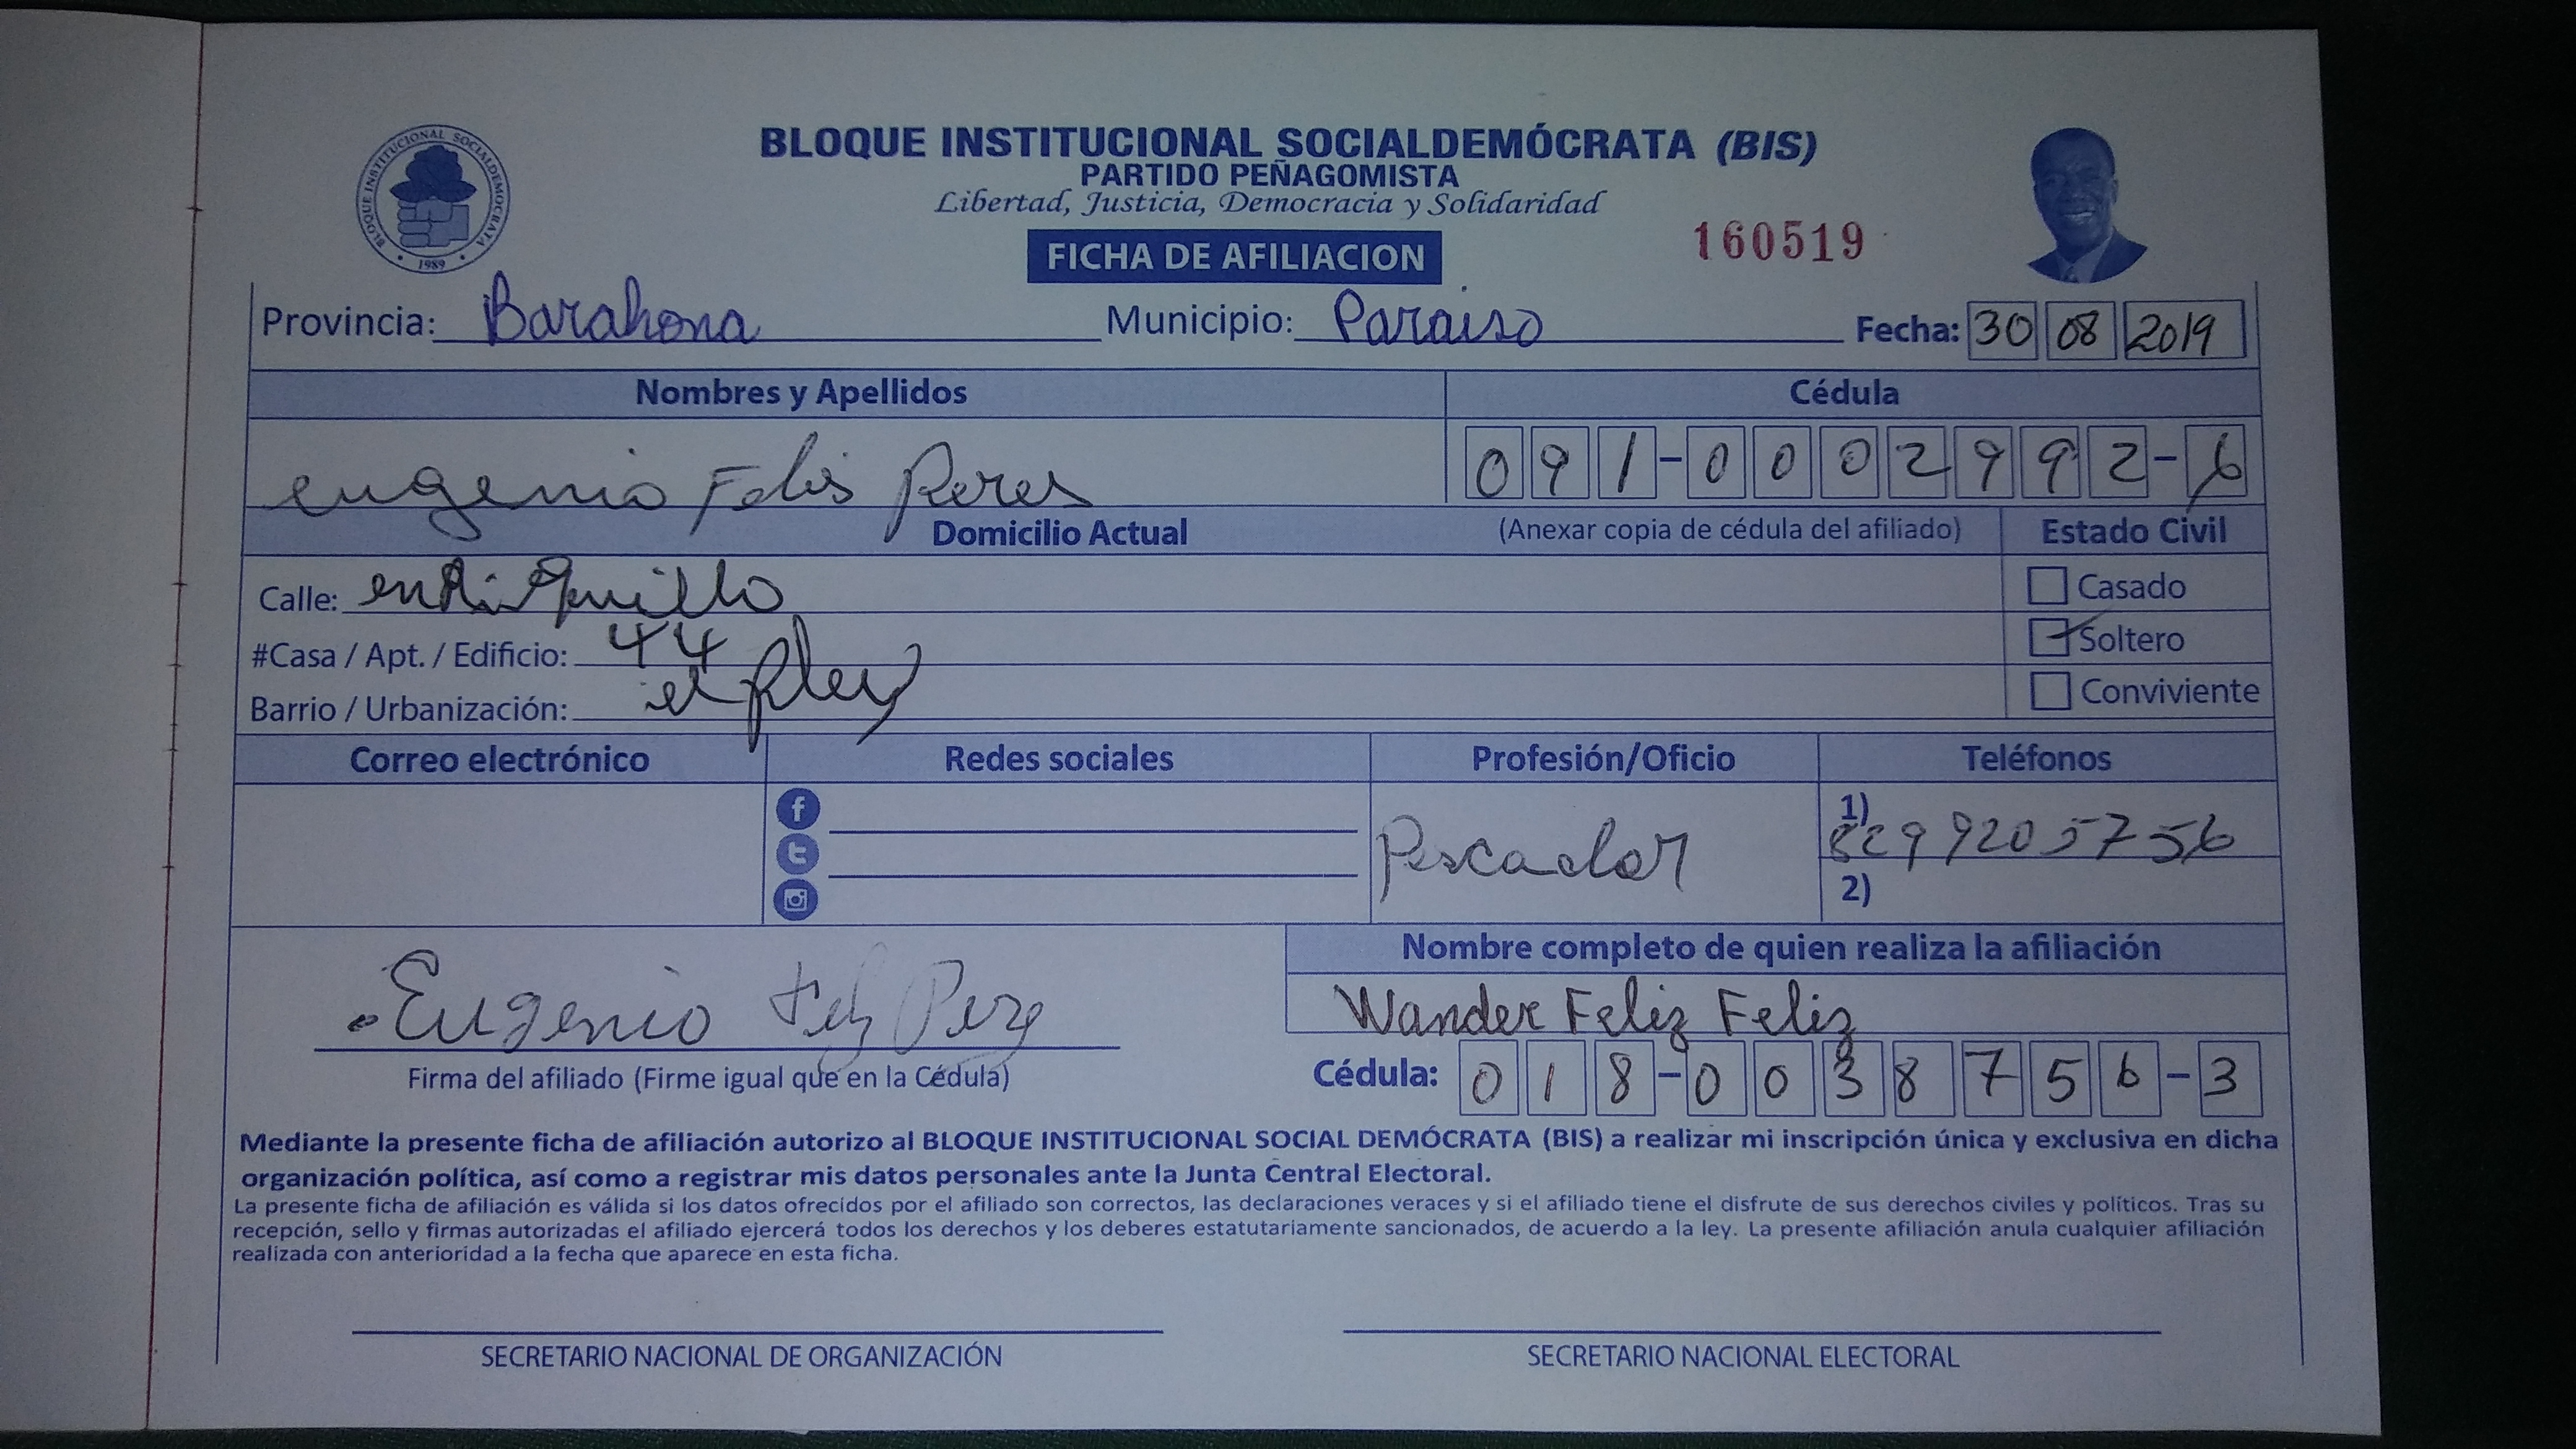 BLOQUE INSTITUCIONAL SOCIALDEMOCRATA
1989
BLOQUE INSTITUCIONAL SOCIALDEMÓCRATA (BIS)
PARTIDO PEÑAGOMISTA
Libertad, Justicia, Democracia y Solidaridad
FICHA DE AFILIACION
160519
Provincia: Barahona Municipio: Paraiso Fecha: 30 08 2019
Nombres y Apellidos Cédula
eugenio Felis Peres 091-0002992-6
Domicilio Actual (Anexar copia de cédula del afiliado) Estado Civil
Calle: enriquillo Casado
#Casa / Apt. / Edificio: 44 Soltero
Barrio / Urbanización: el Pley Conviviente
Correo electrónico Redes sociales Profesión/Oficio Teléfonos
Pescador 1) 8299205756
2)
Nombre completo de quien realiza la afiliación
Eugenio Feliz Perez Wander Feliz Feliz
Firma del afiliado (Firme igual que en la Cédula) Cédula: 018-0038756-3
Mediante la presente ficha de afiliación autorizo al BLOQUE INSTITUCIONAL SOCIAL DEMÓCRATA (BIS) a realizar mi inscripción única y exclusiva en dicha
organización política, así como a registrar mis datos personales ante la Junta Central Electoral.
La presente ficha de afiliación es válida si los datos ofrecidos por el afiliado son correctos, las declaraciones veraces y si el afiliado tiene el disfrute de sus derechos civiles y políticos. Tras su
recepción, sello y firmas autorizadas el afiliado ejercerá todos los derechos y los deberes estatutariamente sancionados, de acuerdo a la ley. La presente afiliación anula cualquier afiliación
realizada con anterioridad a la fecha que aparece en esta ficha.
SECRETARIO NACIONAL DE ORGANIZACIÓN SECRETARIO NACIONAL ELECTORAL